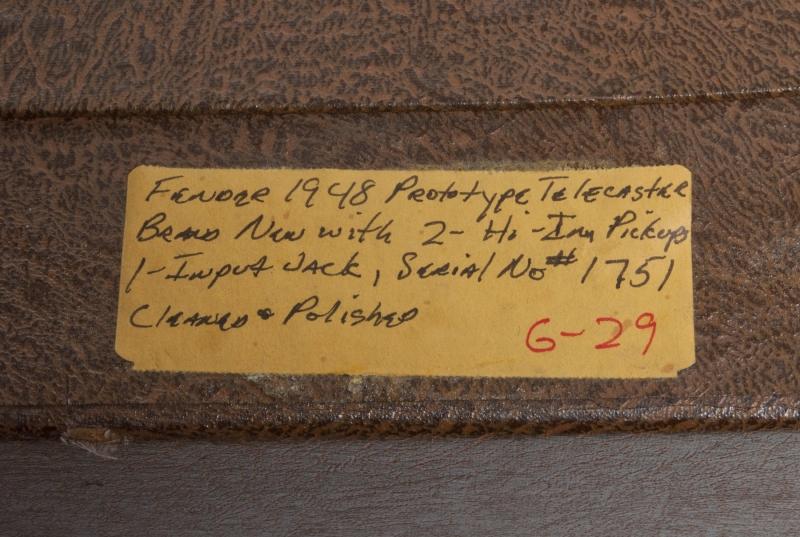 Fender 1948 Prototype Telecaster
Brand New with 2- Hi-Imp Pickups
1-Input Jack, Serial No # 1751
Cleaned & Polished
G-29